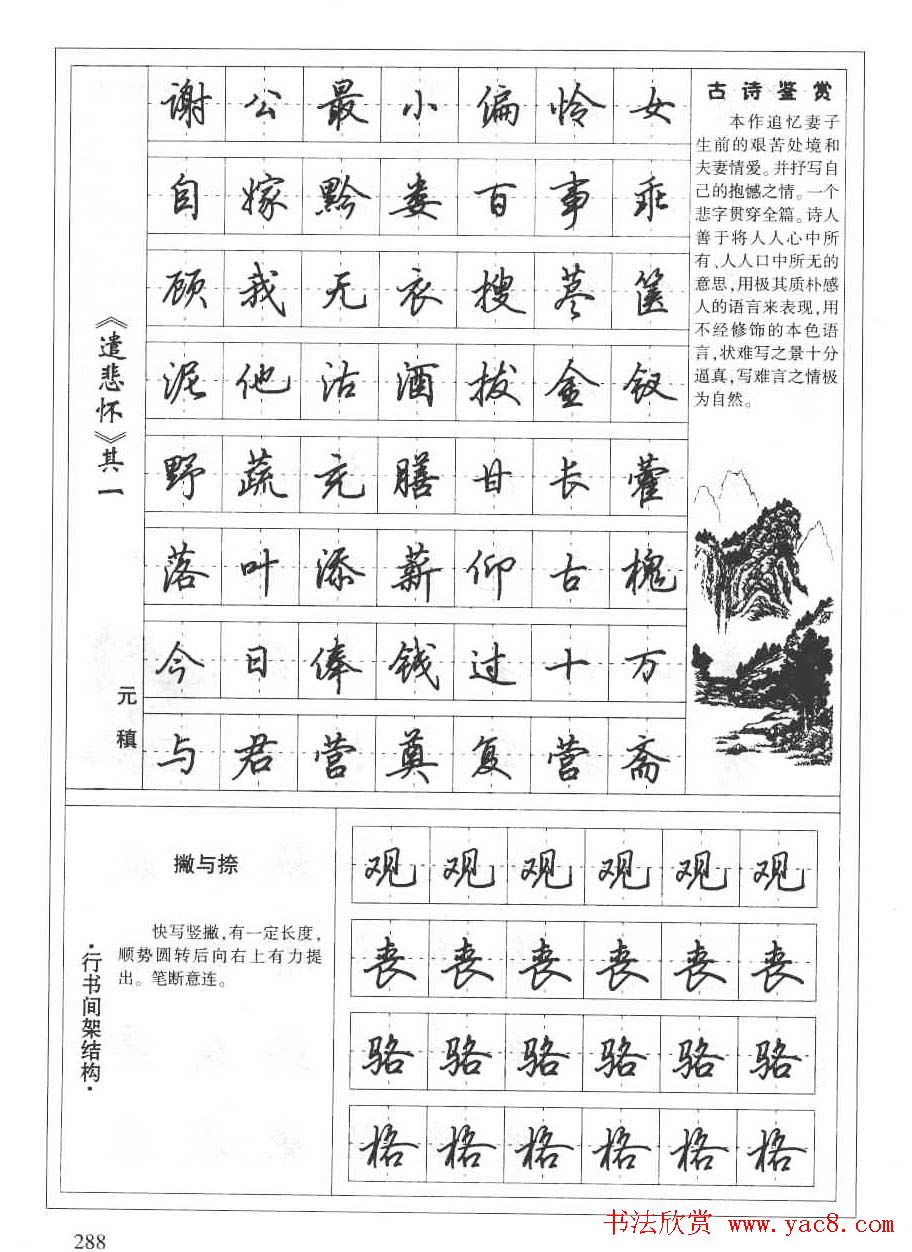 《遣悲怀》其一
元稹
谢公最小偏怜女
自嫁黔娄百事乖
顾我无衣搜荩箧
泥他沽酒拔金钗
野蔬充膳甘长藿
落叶添薪仰古槐
今日俸钱过十万
与君营奠复营斋
古诗鉴赏
本作追忆妻子
生前的艰苦处境和
夫妻情爱。并抒写自
己的抱憾之情。一个
悲字贯穿全篇。诗人
善于将人人心中所
有、人人口中所无的
意思,用极其质朴感
人的语言来表现,用
不经修饰的本色语
言,状难写之景十分
逼真,写难言之情极
为自然。
·行书间架结构·
撇与捺
快写竖撇,有一定长度,
顺势圆转后向右上有力提
出。笔断意连。
观观观观观观
丧丧丧丧丧丧
骆骆骆骆骆骆
格格格格格格
288
书法欣赏 www.yac8.com